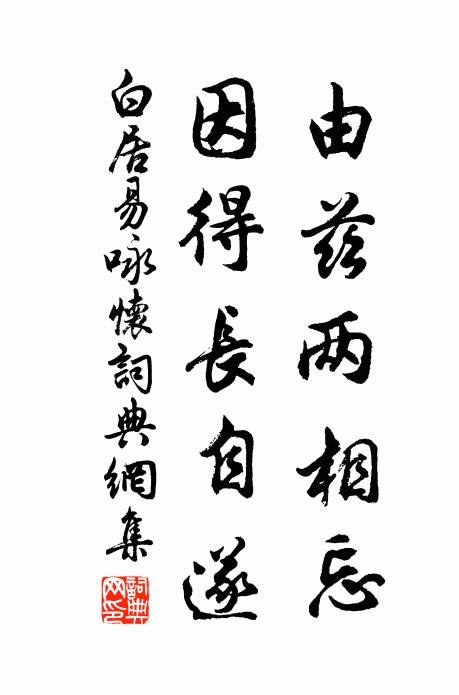 由茲两相忘
因得長自遂
白居易咏懷詞典網集
詞典网印